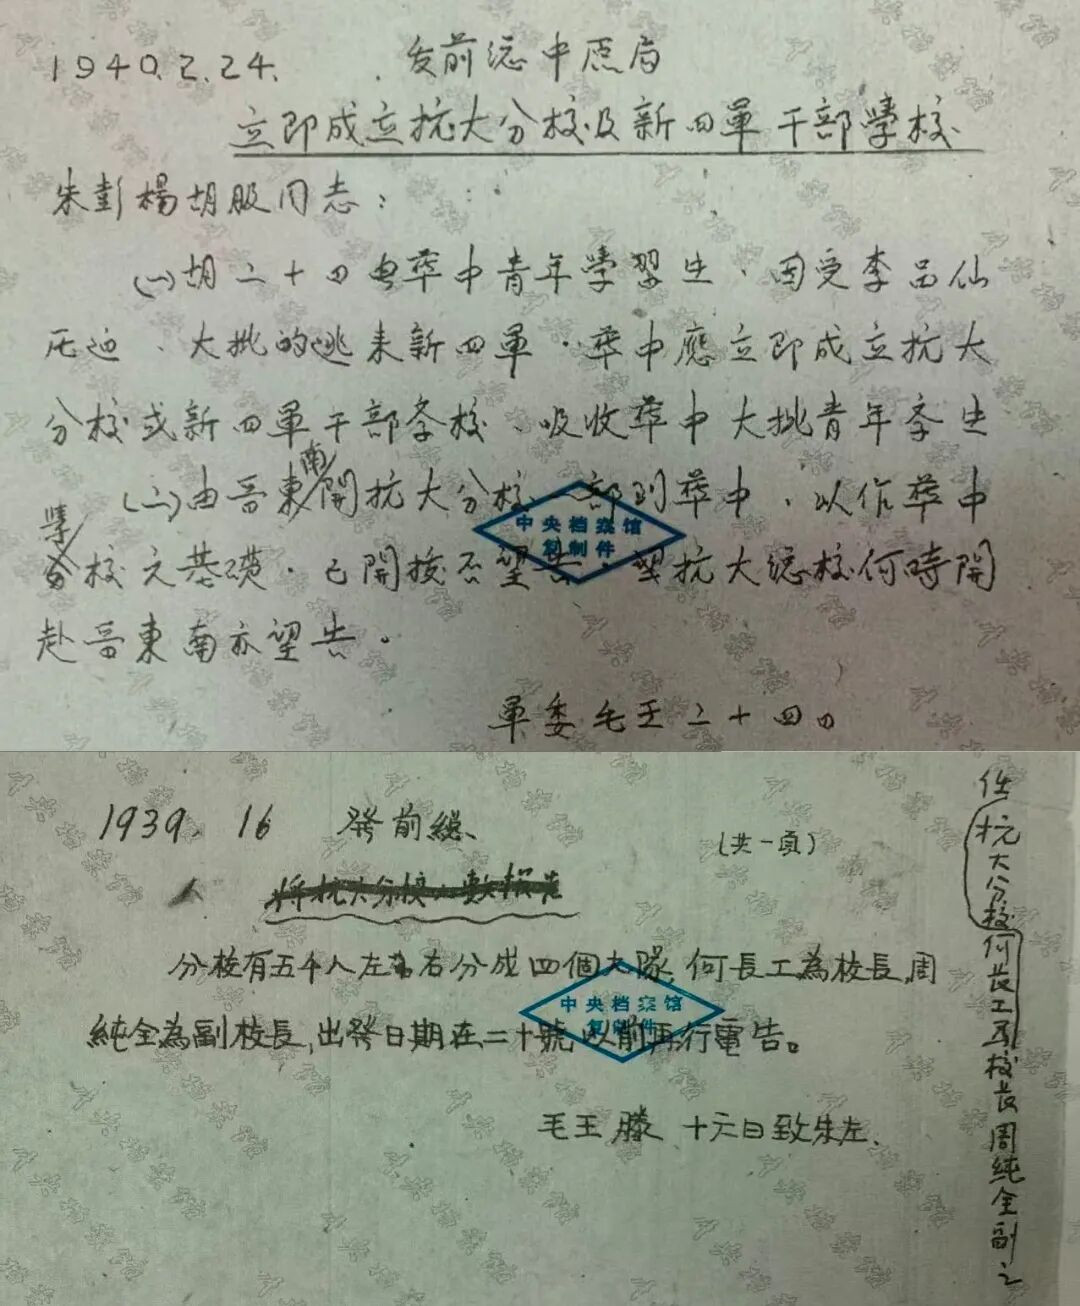 1940.2.24. 发前总中原局
立即成立抗大分校及新四軍干部學校
朱彭楊胡服同志：
(一)胡二十四电華中青年學習生、因受李品仙
压迫、大批的逃来新四軍・華中應立即成立抗大
分校或新四軍干部学校、吸收華中大批青年学生
南
(二)由晋東開抗大分校一部到華中、以作華中
學
分校之基礎・已開拨否望告・望抗大总校何時開
赴晋東南亦望告。
軍委毛王二十四日
中央档案馆
复制件
1939. 16 發前總、
(共一頁)
分校有五千人左右分成四個大隊,何長工為校長,周
純全為副校長,出發日期在二十號以前再行電告。
毛王滕 十六日致朱左.
中央档案馆
复制件
任抗大分校何长工为校长周纯全副之